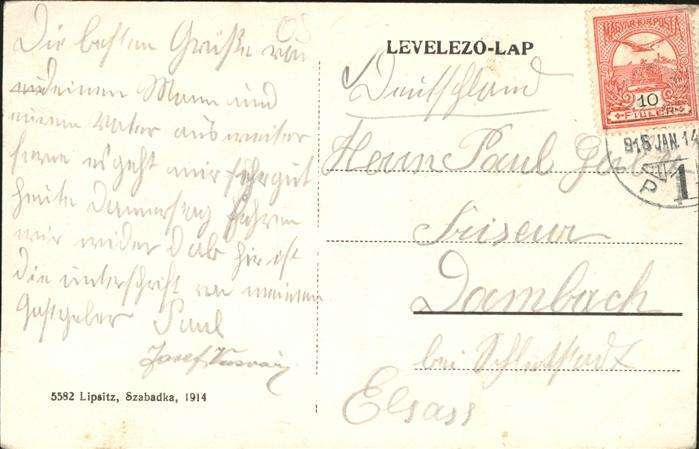 Die besten Grüße von
deinem Mann und
eurem Vater aus weiter
ferne es geht mir sehr gut
heute Donnerstag fahren
wir wider ab hir ist
die unterschrift von meinem
Gastgeber Paul
Josef
5582 Lipsitz, Szabadka, 1914
LEVELEZŐ-LAP
MAGYAR KIR. POSTA
10
FILLÉR
916 JAN. 14
1
Deutschland
Herrn Paul
Friseur
Dambach
bei Schlettstadt
Elsass